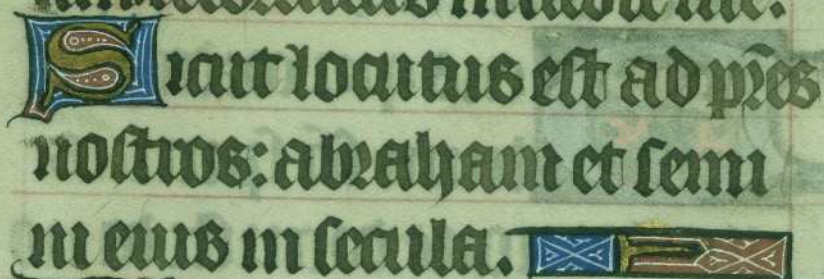 Sicut locutus est ad pr̄es
nostros: abraham et semi
ni eius in secula.